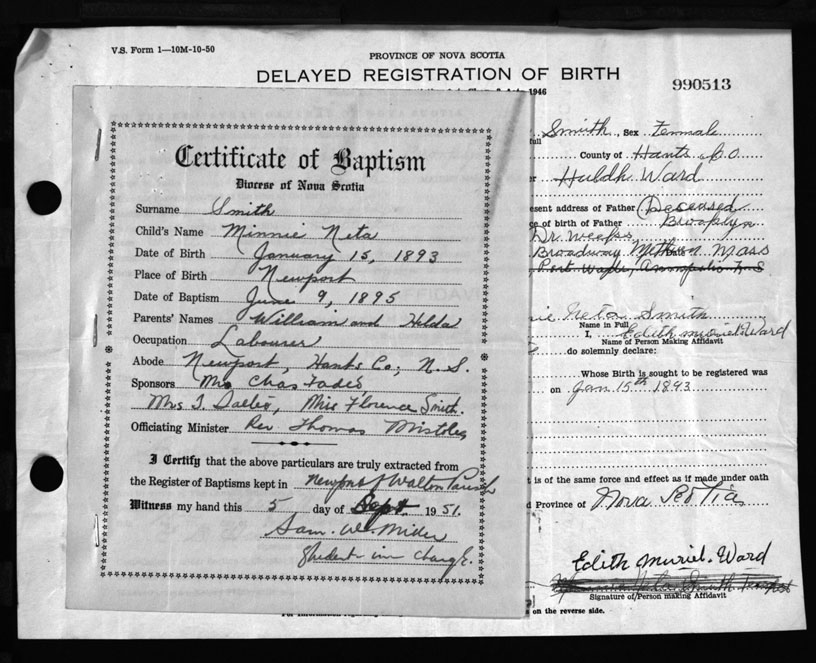 V.S. Form 1—10M-10-50
PROVINCE OF NOVA SCOTIA
DELAYED REGISTRATION OF BIRTH
990513
1946
Certificate of Baptism
Diocese of Nova Scotia
Surname Smith
Child's Name Minnie Neta
Date of Birth January 15, 1893
Place of Birth Newport
Date of Baptism June 9, 1895
Parents' Names William and Hilda
Occupation Labourer
Abode Newport, Hants Co; N. S.
Sponsors Mrs Chas Fader,
Mrs I. Miss Florence Smith.
Officiating Minister Rev Thomas
I Certify that the above particulars are truly extracted from
the Register of Baptisms kept in Newport & Walton Parish
Witness my hand this 5 day of Sept. 1951.
Sam. W. Miller
Student in charge.
Smith, Sex Female
County of Hants Co
Huldh Ward
esent address of Father Deceased
ce of birth of Father Brooklyn
Dr Weeks
Broadway Methuen Mass
nie Neton Smith
Name in Full
I, Edith Muriel Ward
Name of Person Making Affidavit
do solemnly declare:
Whose Birth is sought to be registered was
on Jan 15th 1893
t is of the same force and effect as if made under oath
d Province of Nova Scotia
Edith Muriel. Ward
Signature of Person making Affidavit
on the reverse side.